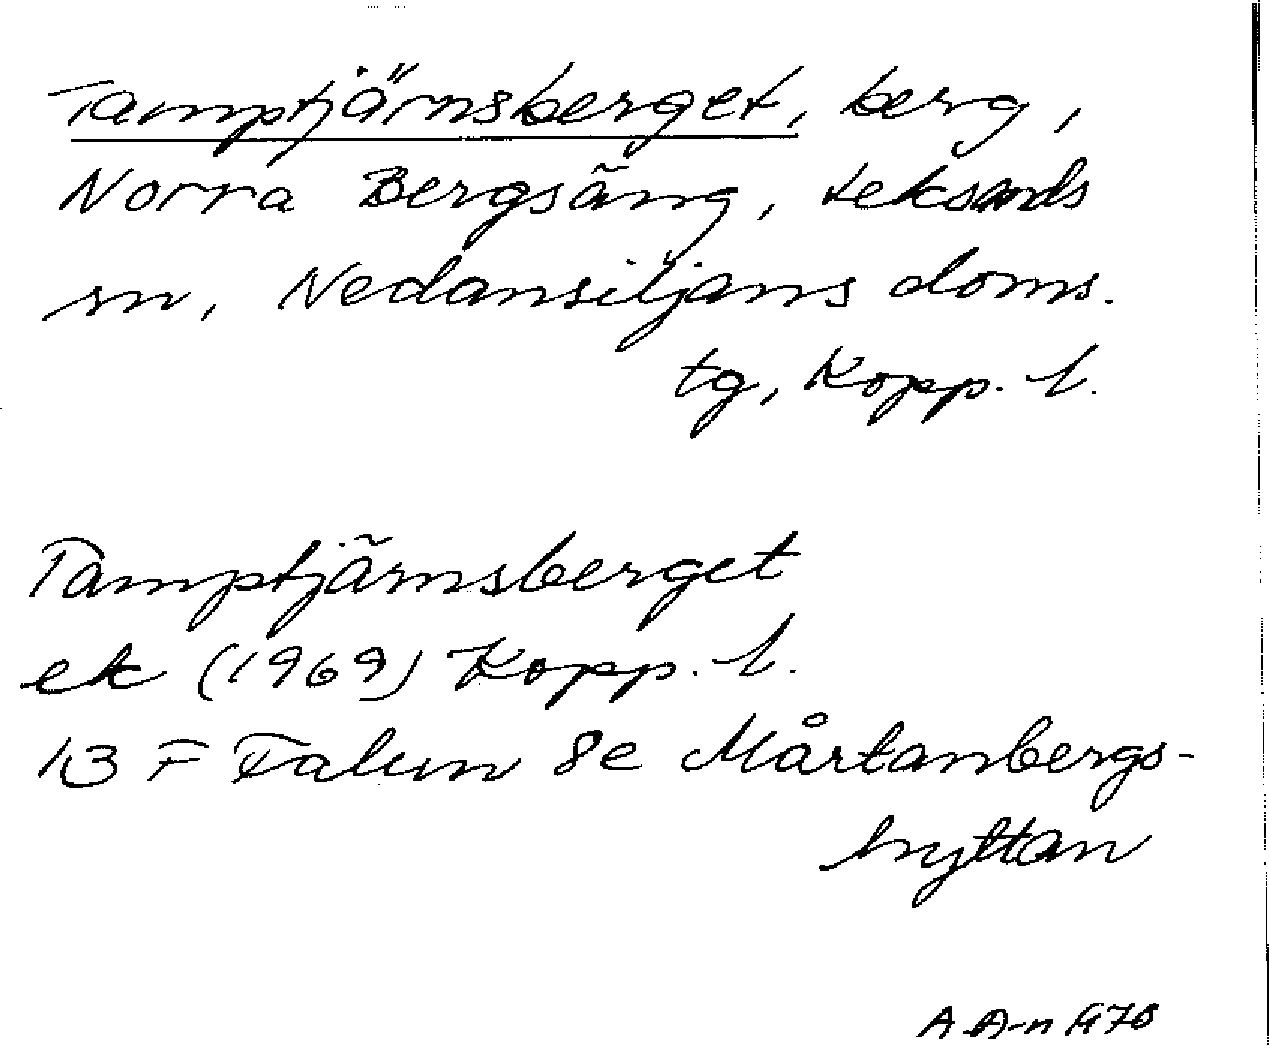 Tamptjärnsberget, berg,
Norra Bergsäng, Leksands
sn, Nedansiljans doms.
tg, Kopp. l.
Tamptjärnsberget
ek (1969) Kopp. l.
13 F Falun 8e Mårtanbergs-
hyttan
A A-n 1970